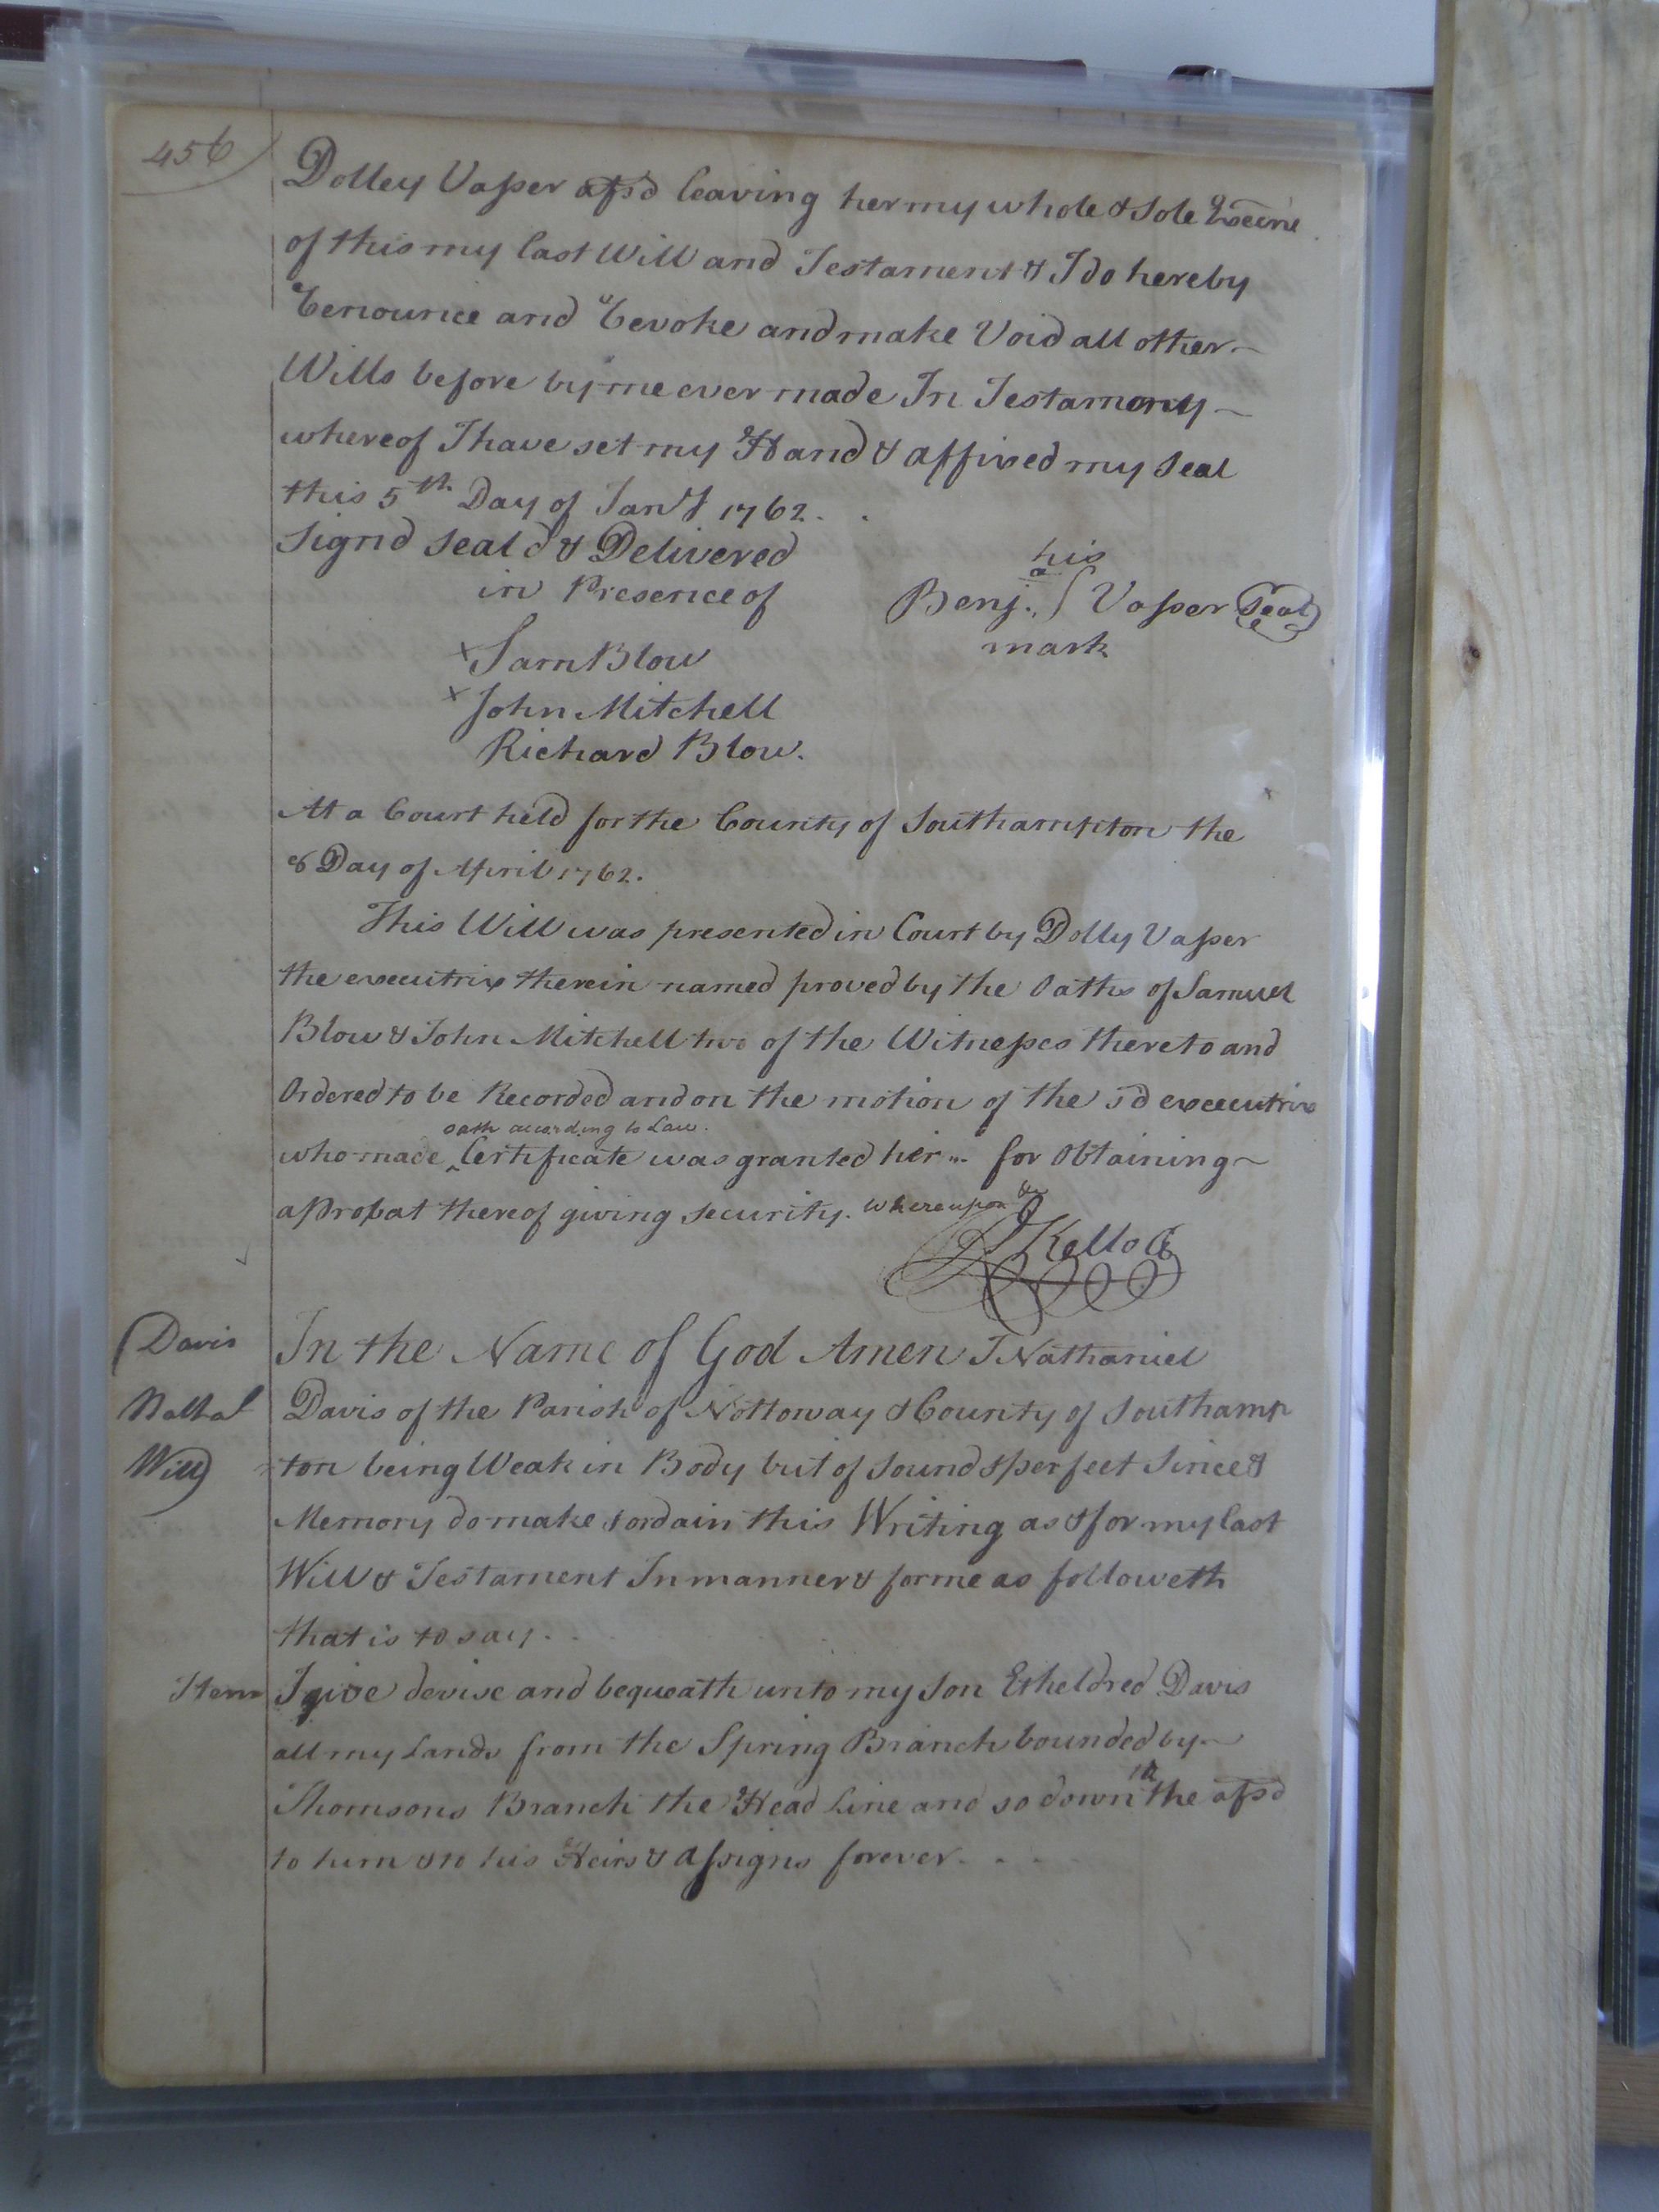 456
Dolley Vasser afsd leaving her my whole & Sole Execūre
of this my last Will and Testament & I do hereby
Renounce and Revoke and make Void all other
Wills before by me ever made In Testamony
whereof I have set my Hand & affixed my Seal
this 5th Day of Jany 1762
Signd Seald & Delivered
in Presence of
his
Benj.a Vasser Seal
mark
Sam Blow
John Mitchell
Richard Blow.
At a Court held for the County of Southampton the
8 Day of April 1762.
This Will was presented in Court by Dolly Vasser
the executrix therein named proved by the Oaths of Samuel
Blow & John Mitchell two of the Witnesses thereto and
Ordered to be Recorded and on the motion of the sd executrix
oath according to Law.
who made ^ Certificate was granted her for Obtaining
a Probat thereof giving security. whereupon &c
Kello
Davis
In the Name of God Amen I Nathaniel
Nathal
Davis of the Parish of Nottoway & County of Southamp
Will
ton being Weak in Body but of Sound & perfect Since &
Memory do make & ordain this Writing as & for my last
Will & Testament In manner & forme as followeth
that is to say
Item I give devise and bequeath unto my Son Etheldred Davis
all my Lands from the Spring Branch bounded by
Thomsons Branch the Head Line and so down the afsd
to him & to his Heirs & assigns forever